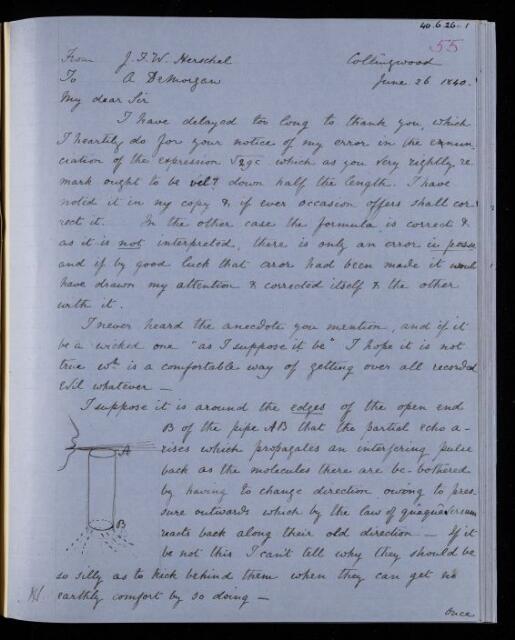 40.6.26.1
55
From J.F.W. Herschel Collingwood
To A DeMorgan June 26 1840.
My dear Sir
I have delayed too long to thank you, which
I heartily do for your notice of my error in the enun-
ciation of the expression √2gc which as you very rightly re
mark ought to be velʸ down half the length. I have
noted it in my copy & if ever occasion offers shall cor
rect it. In the other case the formula is correct &
as it is not interpreted, there is only an error in posse
and if by good luck that error had been made it would
have drawn my attention & corrected itself & the other
with it.
I never heard the anecdote you mention, and if it
be a wicked one "as I suppose it be" I hope it is not
true wʰ is a comfortable way of getting over all recorded
Evil whatever —
I suppose it is around the edges of the open end
B of the pipe AB that the partial echo a-
rises which propagates an interfering pulse
back as the molecules there are be-bothered
by having to change direction owing to pres-
sure outwards which by the law of quaquaversum
reacts back along their old direction — If it
be not this I can't tell why they should be
so silly as to kick behind them when they can get no
earthly comfort by so doing —
A
B
once